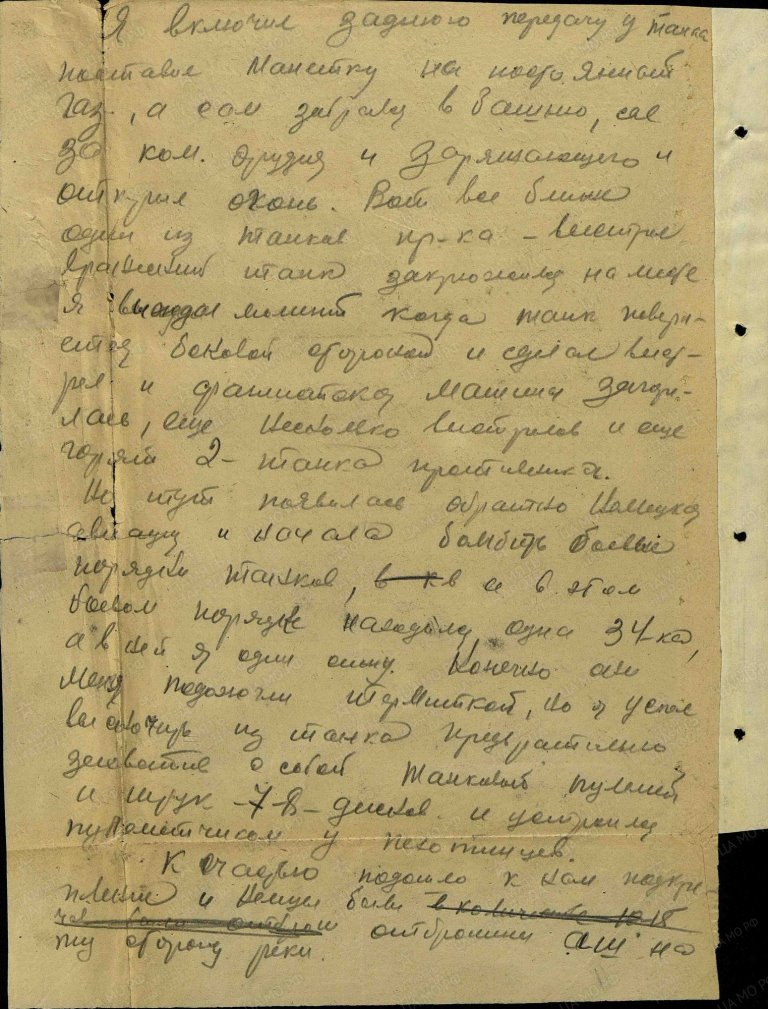 Я включил заднюю передачу у танка
поставил манетку на постоянный
газ, а сам забрался в башню, сел
за ком. орудия и заряжающего и
открыл огонь. Вот все ближе
один из танков пр-ка – выстрел
вражеский танк закружился на месте
я выждал момент когда танк повер-
нется боковой стороной и сделал выст-
рел и фашистская машина загоре-
лась, еще несколько выстрелов и еще
горят 2– танка противника.
Но тут появилась обратно немецкая
авиация и начала бомбить боевые
порядки танков, а в этом
боевом порядке находилась одна 34-ка,
а в ней я один сижу. Конечно они
меня подожгли термиткой, но я успел
выскочить из танка предварительно
захватив с собой танковый пулемет
и штук –7-8– дисков и устроился
пулеметчиком у пехотинцев.
К счастью подошло к нам подкре-
пление и немцы были в количестве 10-15
чел были отбиты отброшены аш на
ту сторону реки.